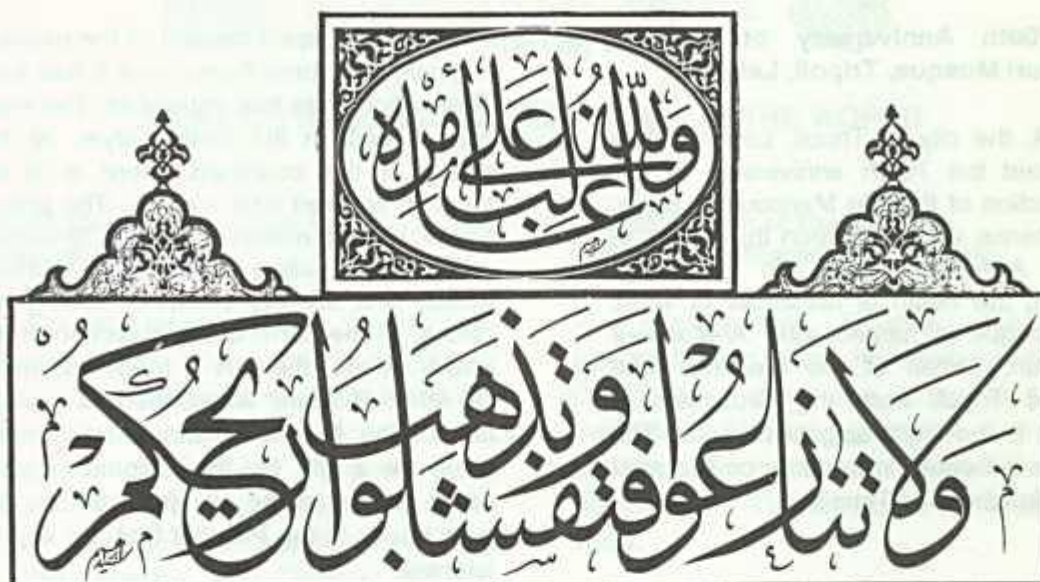 والله غالب على أمره
ولا تنازعوا فتفشلوا وتذهب ريحكم